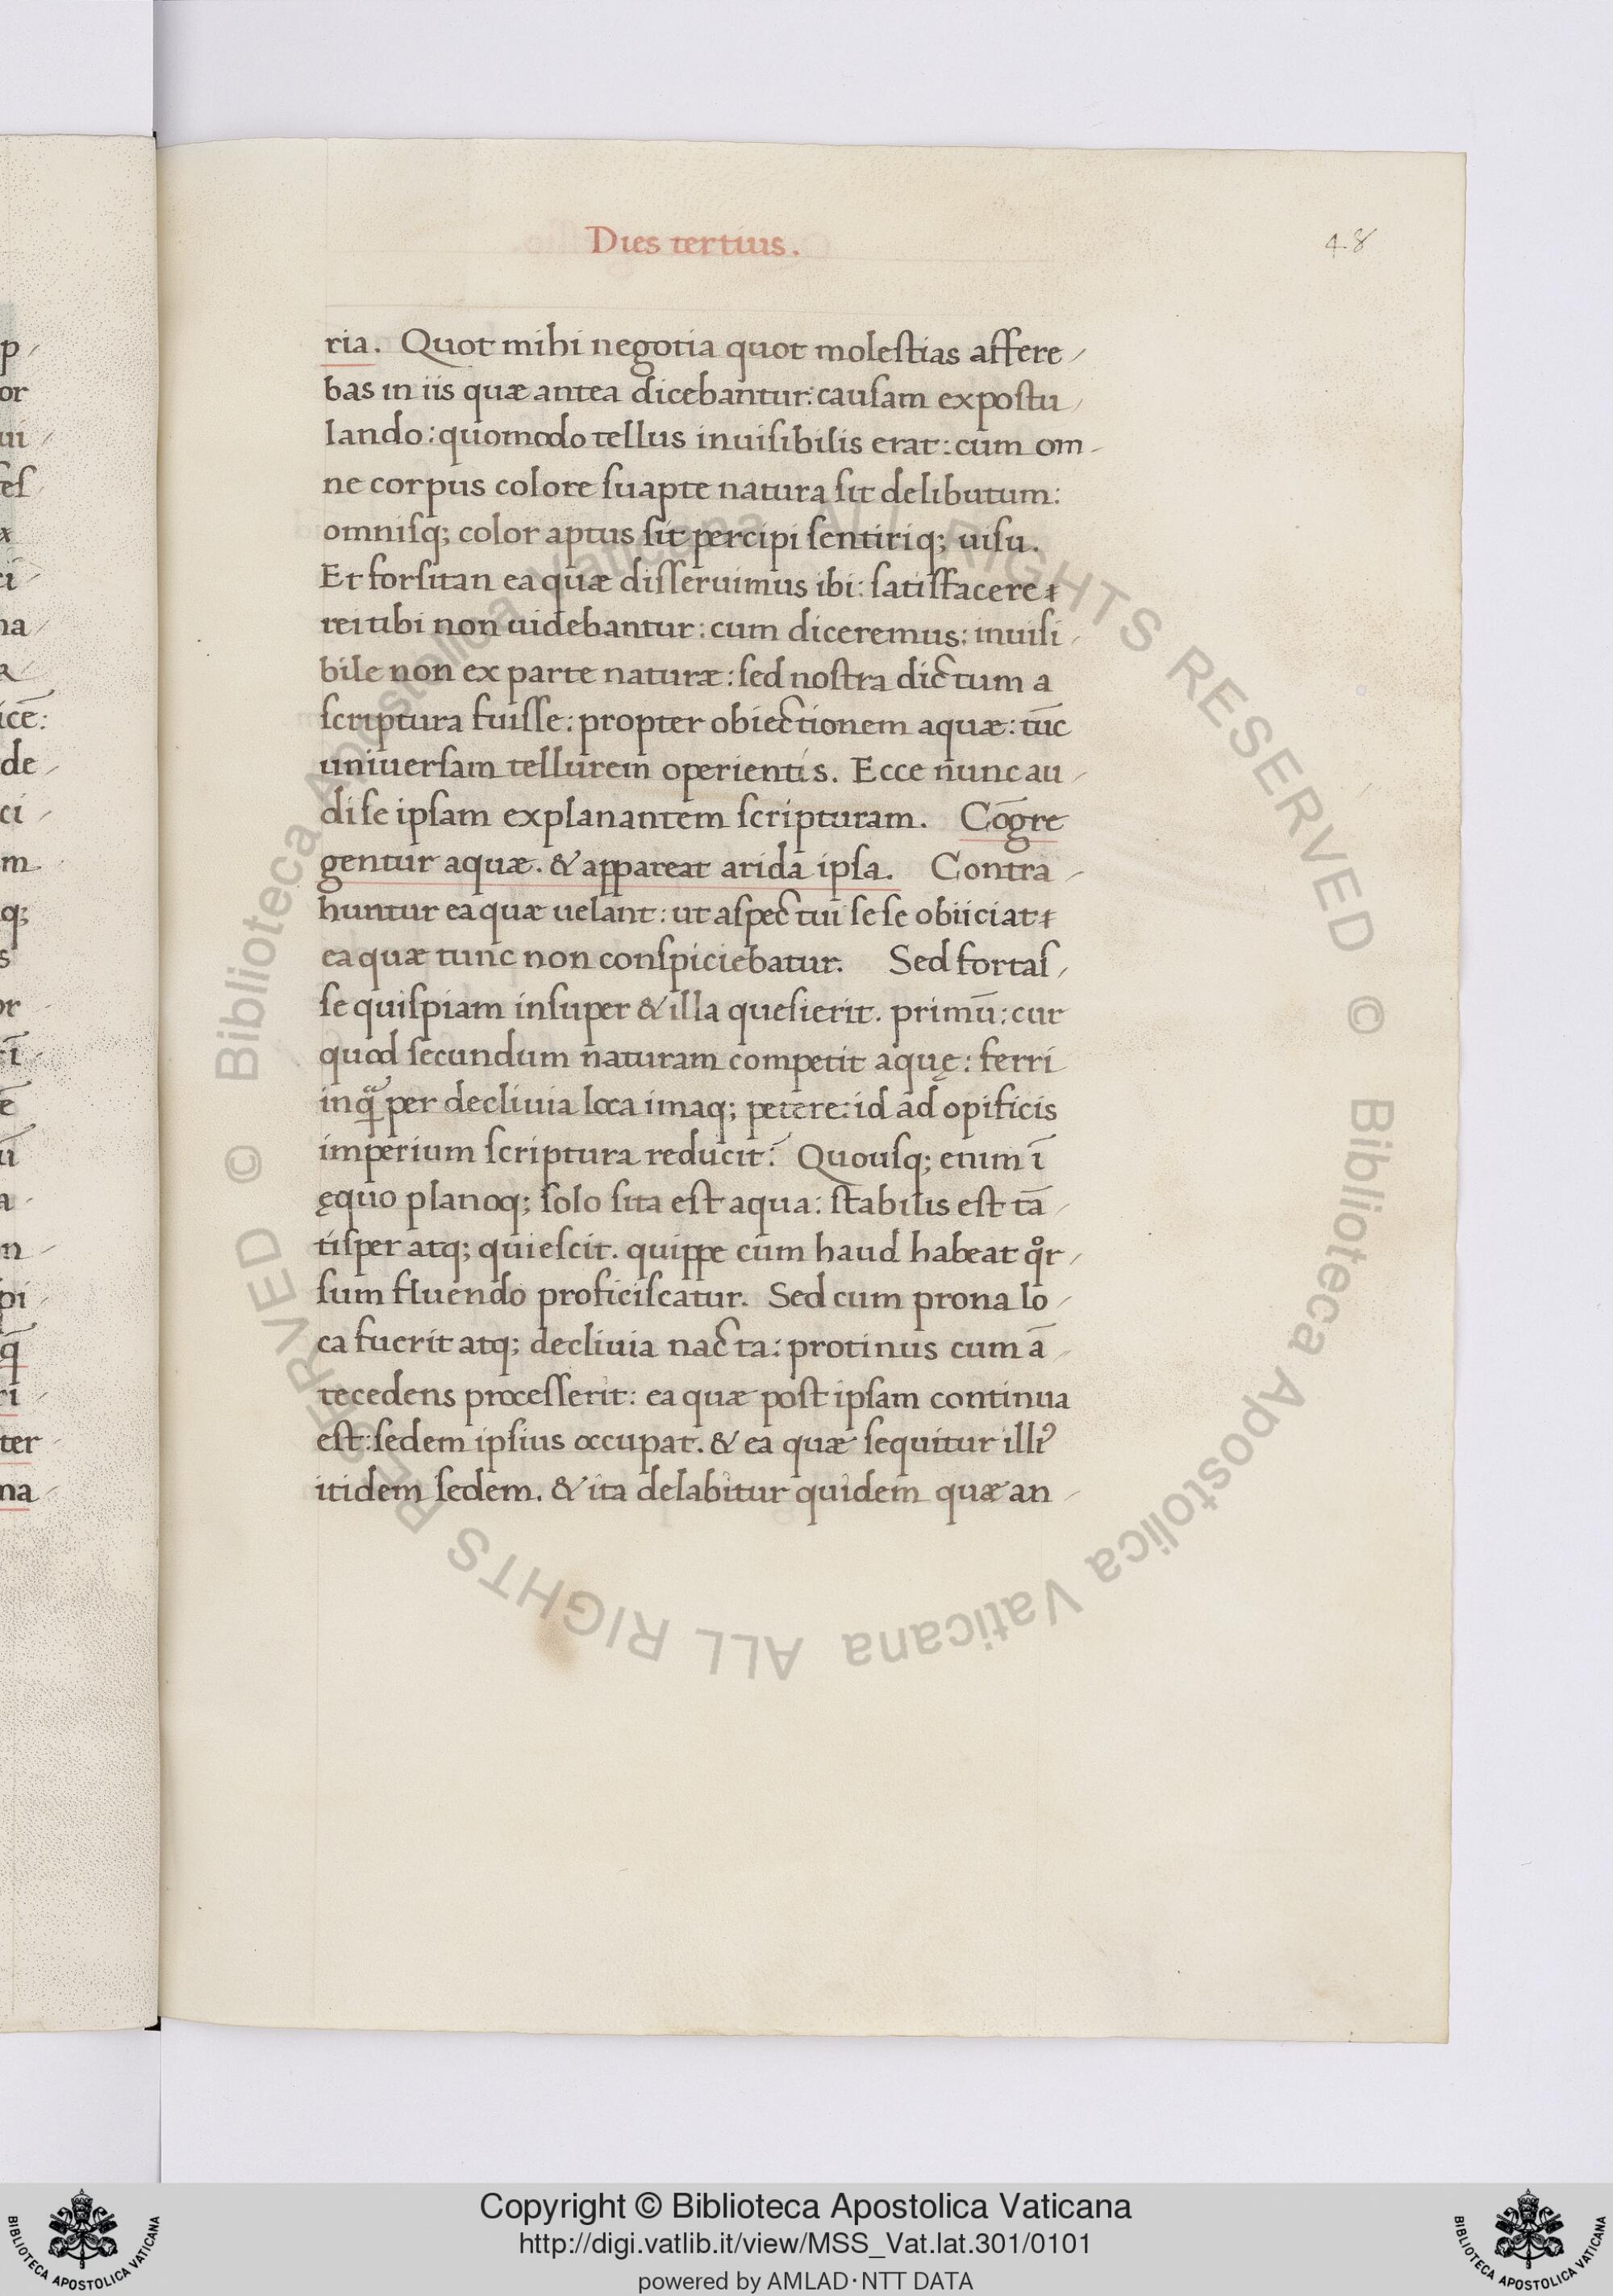 Dies tertius.
48
ria. Quot mihi negotia quot moleſtias affere-
bas in iis quæ antea dicebantur: cauſam expoſtu-
lando: quomodo tellus inuiſibilis erat: cum om-
ne corpus colore ſuapte natura ſit delibutum:
omniſq; color aptus ſit percipi ſentiriq; uiſu.
Et forſitan ea quæ diſſeruimus ibi: ſatiſfacere
rei tibi non uidebantur: cum diceremus: inuiſi-
bile non ex parte naturæ: ſed noſtra dictum a
ſcriptura fuiſſe: propter obiectionem aquæ: tūc
uniuerſam tellurem operientis. Ecce nunc au-
di ſe ipſam explanantem ſcripturam. Cōgre
gentur aquæ. & appareat arida ipſa. Contra-
huntur ea quæ uelant: ut aſpectui ſe ſe obiiciat
ea quæ tunc non conſpiciebatur. Sed fortaſ-
ſe quiſpiam inſuper & illa queſierit. primū: cur
quod ſecundum naturam competit aquę: ferri
inquā per decliuia loca imaq; petere: id ad opificis
imperium ſcriptura reducit. Quouſq; enim ī
ęquo planoq; ſolo ſita eſt aqua: ſtabilis eſt tā-
tiſper atq; quieſcit. quippe cum haud habeat qͦr-
ſum fluendo proficiſcatur. Sed cum prona lo-
ca fuerit atq; decliuia nacta: protinus cum ā-
tecedens proceſſerit: ea quæ poſt ipſam continua
eſt: ſedem ipſius occupat. & ea quæ ſequitur illiꝰ
itidem ſedem. & ita delabitur quidem quæ an-
p-
or
ui-
eſ
ci-
na-
icē:
de-
ci-
m
q;
s
or
ē
a-
n-
pi-
q̄
ri-
ter
na-
© Biblioteca Apostolica Vaticana ALL RIGHTS RESERVED © Biblioteca Apostolica Vaticana ALL RIGHTS RESERVED
BIBLIOTECA APOSTOLICA VATICANA
Copyright © Biblioteca Apostolica Vaticana
http://digi.vatlib.it/view/MSS_Vat.lat.301/0101
powered by AMLAD·NTT DATA
BIBLIOTECA APOSTOLICA VATICANA